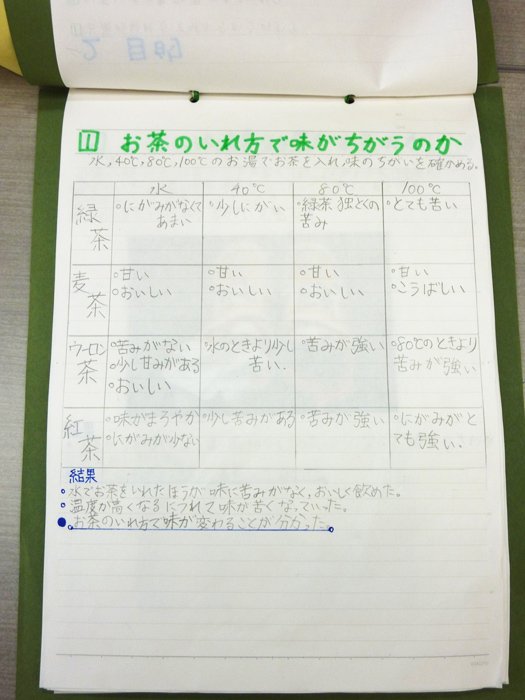 11 お茶のいれ方で味がちがうのか
水,40℃,80℃,100℃のお湯でお茶を入れ,味のちがいを確かめる。
水 40℃ 80℃ 100℃
緑茶
○にがみがなくてあまい
○少しにがい
○緑茶独とくの苦み
○とても苦い
麦茶
○甘い
○おいしい
○甘い
○おいしい
○甘い
○おいしい
○甘い
○こうばしい
ウーロン茶
○苦みがない
○少し甘みがある
○おいしい
○水のときより少し苦い.
○苦みが強い
○80℃のときより苦みが強い
紅茶
○味がまろやか
○にがみが少ない
○少し苦みがある
○苦みが強い
○にがみがとても強い.
結果
○水でお茶をいれたほうが味に苦みがなく,おいしく飲めた。
○温度が高くなるにつれて味が苦くなっていった。
●お茶のいれ方で味が変わることが分かった。